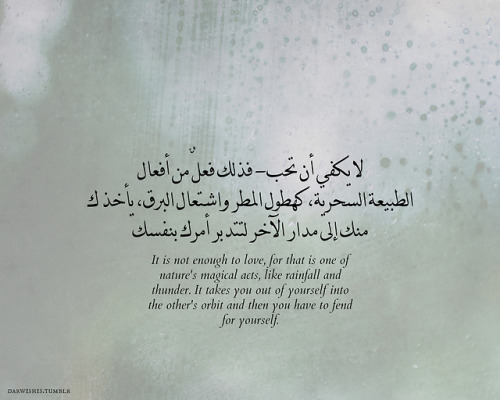 لا يكفي أن تحب– فذلك فعلٌ من أفعال
الطبيعة السحرية، كهطول المطر واشتعال البرق، يأخذك
منك إلى مدار الآخر لتتدبر أمرك بنفسك
It is not enough to love, for that is one of
nature's magical acts, like rainfall and
thunder. It takes you out of yourself into
the other's orbit and then you have to fend
for yourself.
DARWISHIS.TUMBLR